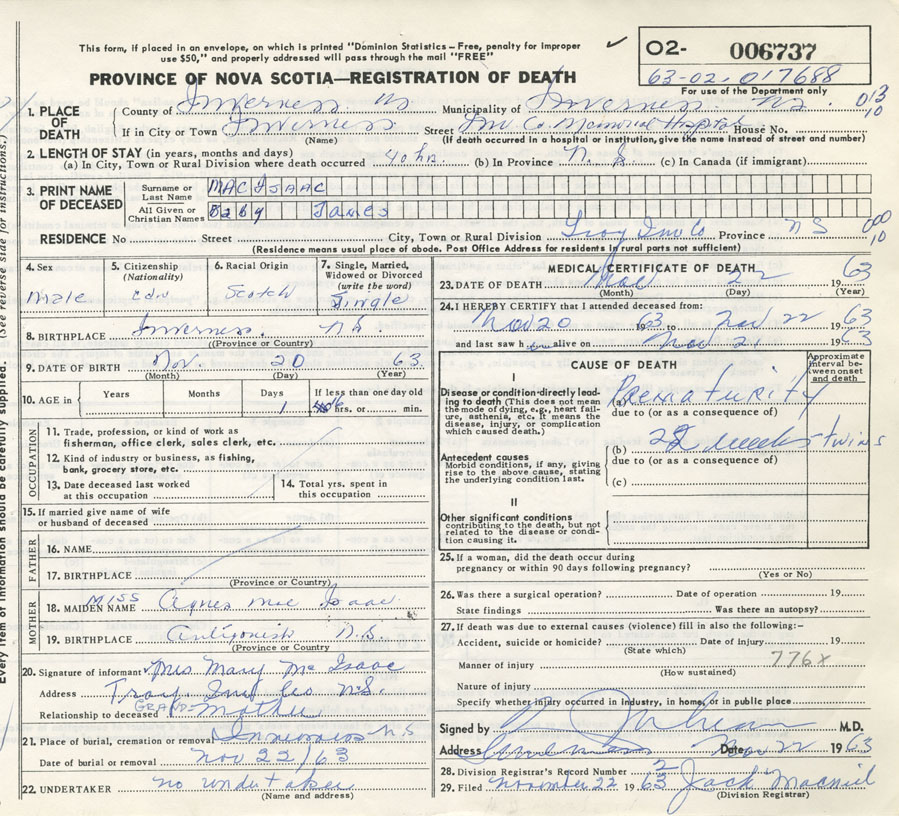 This form, if placed in an envelope, on which is printed "Dominion Statistics - Free, penalty for improper
use $50," and properly addressed will pass through the mail "FREE"
PROVINCE OF NOVA SCOTIA—REGISTRATION OF DEATH
O2- 006737
63-02-017688
For use of the Department only
1. PLACE OF DEATH
County of Inverness NS Municipality of Inverness NS. 013
If in City or Town Inverness Street Inv Co Memorial Hospital House No. 10
(Name) (If death occurred in a hospital or institution, give the name instead of street and number)
2. LENGTH OF STAY (in years, months and days)
(a) In City, Town or Rural Division where death occurred 40 hrs. (b) In Province N. S. (c) In Canada (if immigrant)
3. PRINT NAME OF DECEASED
Surname or Last Name MACISAAC
All Given or Christian Names Baby James
RESIDENCE No Street City, Town or Rural Division Troy Inv Co Province NS 000
10
(Residence means usual place of abode. Post Office Address for residents in rural parts not sufficient)
4. Sex
Male
5. Citizenship
(Nationality)
Cdn
6. Racial Origin
Scotch
7. Single, Married,
Widowed or Divorced
(write the word)
Single
8. BIRTHPLACE Inverness. NS
(Province or Country)
9. DATE OF BIRTH Nov. 20 63.
(Month) (Day) (Year)
10. AGE in Years Months Days If less than one day old
1 hrs. or min.
OCCUPATION
11. Trade, profession, or kind of work as
fisherman, office clerk, sales clerk, etc.
12. Kind of industry or business, as fishing,
bank, grocery store, etc.
13. Date deceased last worked
at this occupation
14. Total yrs. spent in
this occupation
15. If married give name of wife
or husband of deceased
FATHER
16. NAME
17. BIRTHPLACE
(Province or Country)
MOTHER
18. MAIDEN NAME MISS Agnes Mac Isaac
19. BIRTHPLACE Antigonish N.S.
(Province or Country
20. Signature of informant Mrs Mary Mc Isaac
Address Troy. Inv Co N.S.
Relationship to deceased GRAND-Mother
21. Place of burial, cremation or removal Inverness NS
Date of burial or removal Nov 22/63
22. UNDERTAKER no undertaker
(Name and address)
MEDICAL CERTIFICATE OF DEATH
23. DATE OF DEATH Nov 22 1963
(Month) (Day) (Year)
24. I HEREBY CERTIFY that I attended deceased from:
Nov 20 1963 to Nov 22 1963
and last saw h im alive on Nov 21 1963
CAUSE OF DEATH
Approximate
interval be-
tween onset
and death
I
Disease or condition directly lead-
ing to death (This does not mean
the mode of dying, e.g., heart fail-
ure, asthenia, etc. It means the
disease, injury, or complication
which caused death.)
(a) Prematurity
due to (or as a consequence of)
Antecedent causes
Morbid conditions, if any, giving
rise to the above cause, stating
the underlying condition last.
(b) 28 weeks twins
due to (or as a consequence of)
(c)
II
Other significant conditions
contributing to the death, but not
related to the disease or condi-
tion causing it.
25. If a woman, did the death occur during
pregnancy or within 90 days following pregnancy?
(Yes or No)
26. Was there a surgical operation? Date of operation 19
State findings Was there an autopsy?
27. If death was due to external causes (violence) fill in also the following:-
Accident, suicide or homicide? Date of injury 19
(State which)
Manner of injury 776x
(How sustained)
Nature of injury
Specify whether injury occurred in Industry, in home, or in public place
Signed by M.D.
Address Inverness Date Nov 22 1963
28. Division Registrar's Record Number 2
29. Filed November 22 1963 Jack Macniel
(Division Registrar)
Every item of information should be carefully supplied. (See reverse side for instructions.)